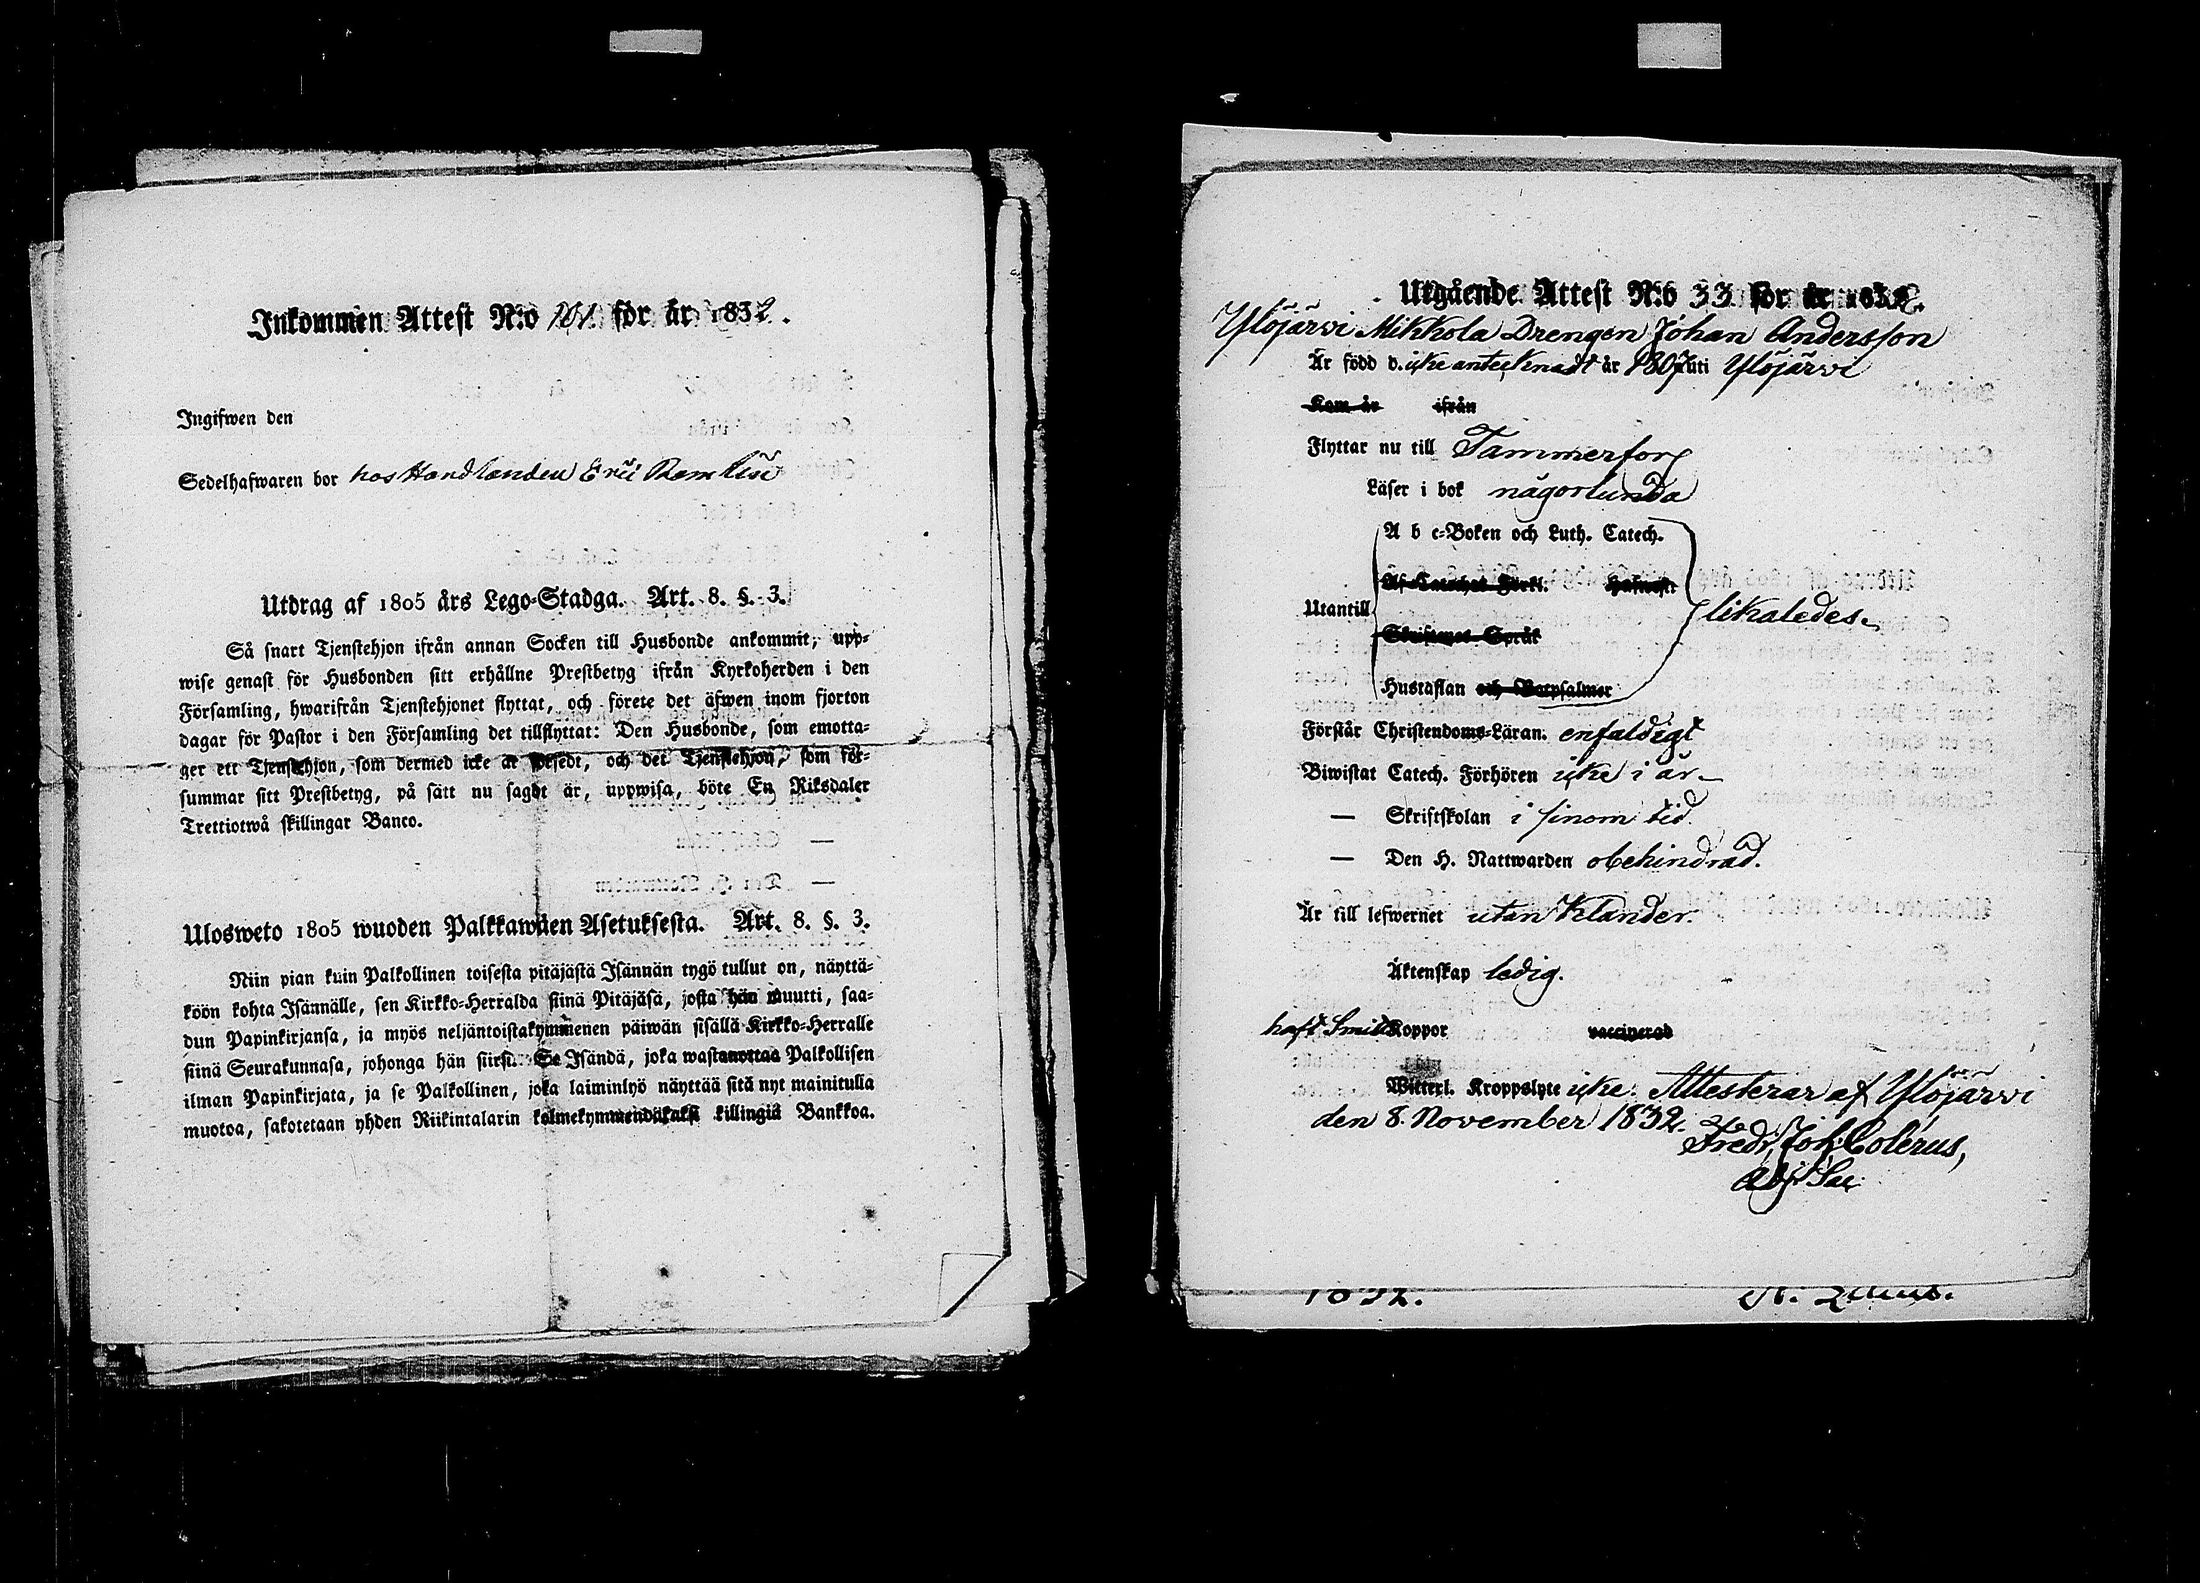 Inkommen Attest N:o 101 för år 1832.
Ingifwen den
Sedelhafwaren bor hos Handlanden Eric
Utdrag af 1805 års Lego-Stadga. Art. 8. §. 3.
Så snart Tjenstehjon ifrån annan Socken till Husbonde ankommit, upp-
wise genast för Husbonden sitt erhållne Prestbetyg ifrån Kyrkoherden i den
Församling, hwarifrån Tjenstehjonet flyttat, och förete det äfwen inom fjorton
dagar för Pastor i den Församling det tillflyttat: Den Husbonde, som emotta-
ger ett Tjenstehjon, som dermed icke är försedt, och det Tjenstehjon, som för-
summar sitt Prestbetyg, på sätt nu sagdt är, uppwisa, böte En Riksdaler
Trettiotwå skillingar Banco.
Ulosweto 1805 wuoden Palkkawäen Asetuksesta. Art. 8. §. 3.
Niin pian kuin Palkollinen toisesta pitäjästä Isännän tygö tullut on, näyttä-
köön kohta Isännälle, sen Kirkko-Herralda siinä Pitäjäsä, josta hän muutti, saa-
dun Papinkirjansa, ja myös neljäntoistakymmenen päiwän sisällä Kirkko-Herralle
siinä Seurakunnasa, johonga hän siirsi. Se Isändä, joka wastanottaa Palkollisen
ilman Papinkirjata, ja se Palkollinen, joka laiminlyö näyttää sitä nyt mainitulla
muotoa, sakotetaan yhden Riikintalarin kolmekymmendäkaksi killingiä Bankkoa.
Utgående Attest N:o 33 för år 1832.
Ylöjärvi Mikkola Drengen Johan Andersson
Är född d. icke antecknadt år 1807 uti Ylöjärvi
Kom år ifrån
Flyttar nu till Tammerfors
Läser i bok någorlunda
A b c-Boken och Luth. Catech.
Af Catechet Förkl. Hufwudst.
Utantill likaledes.
Skriftenes Språk
Hustaflan och Botpsalmer
Förstår Christendoms-Läran. enfaldigt
Biwistat Catech. Förhören icke i år
— Skriftskolan i sinom tid.
— Den H. Nattwarden obehindrad.
Är till lefwernet utan Klander.
Äktenskap ledig.
haft Smittkoppor vaccinerad
Witterl. Kroppslyte icke. Attesterar af Ylöjärvi
den 8. November 1832.
Fredr. Joh. Colérus,
Adj. Sac.
1832.